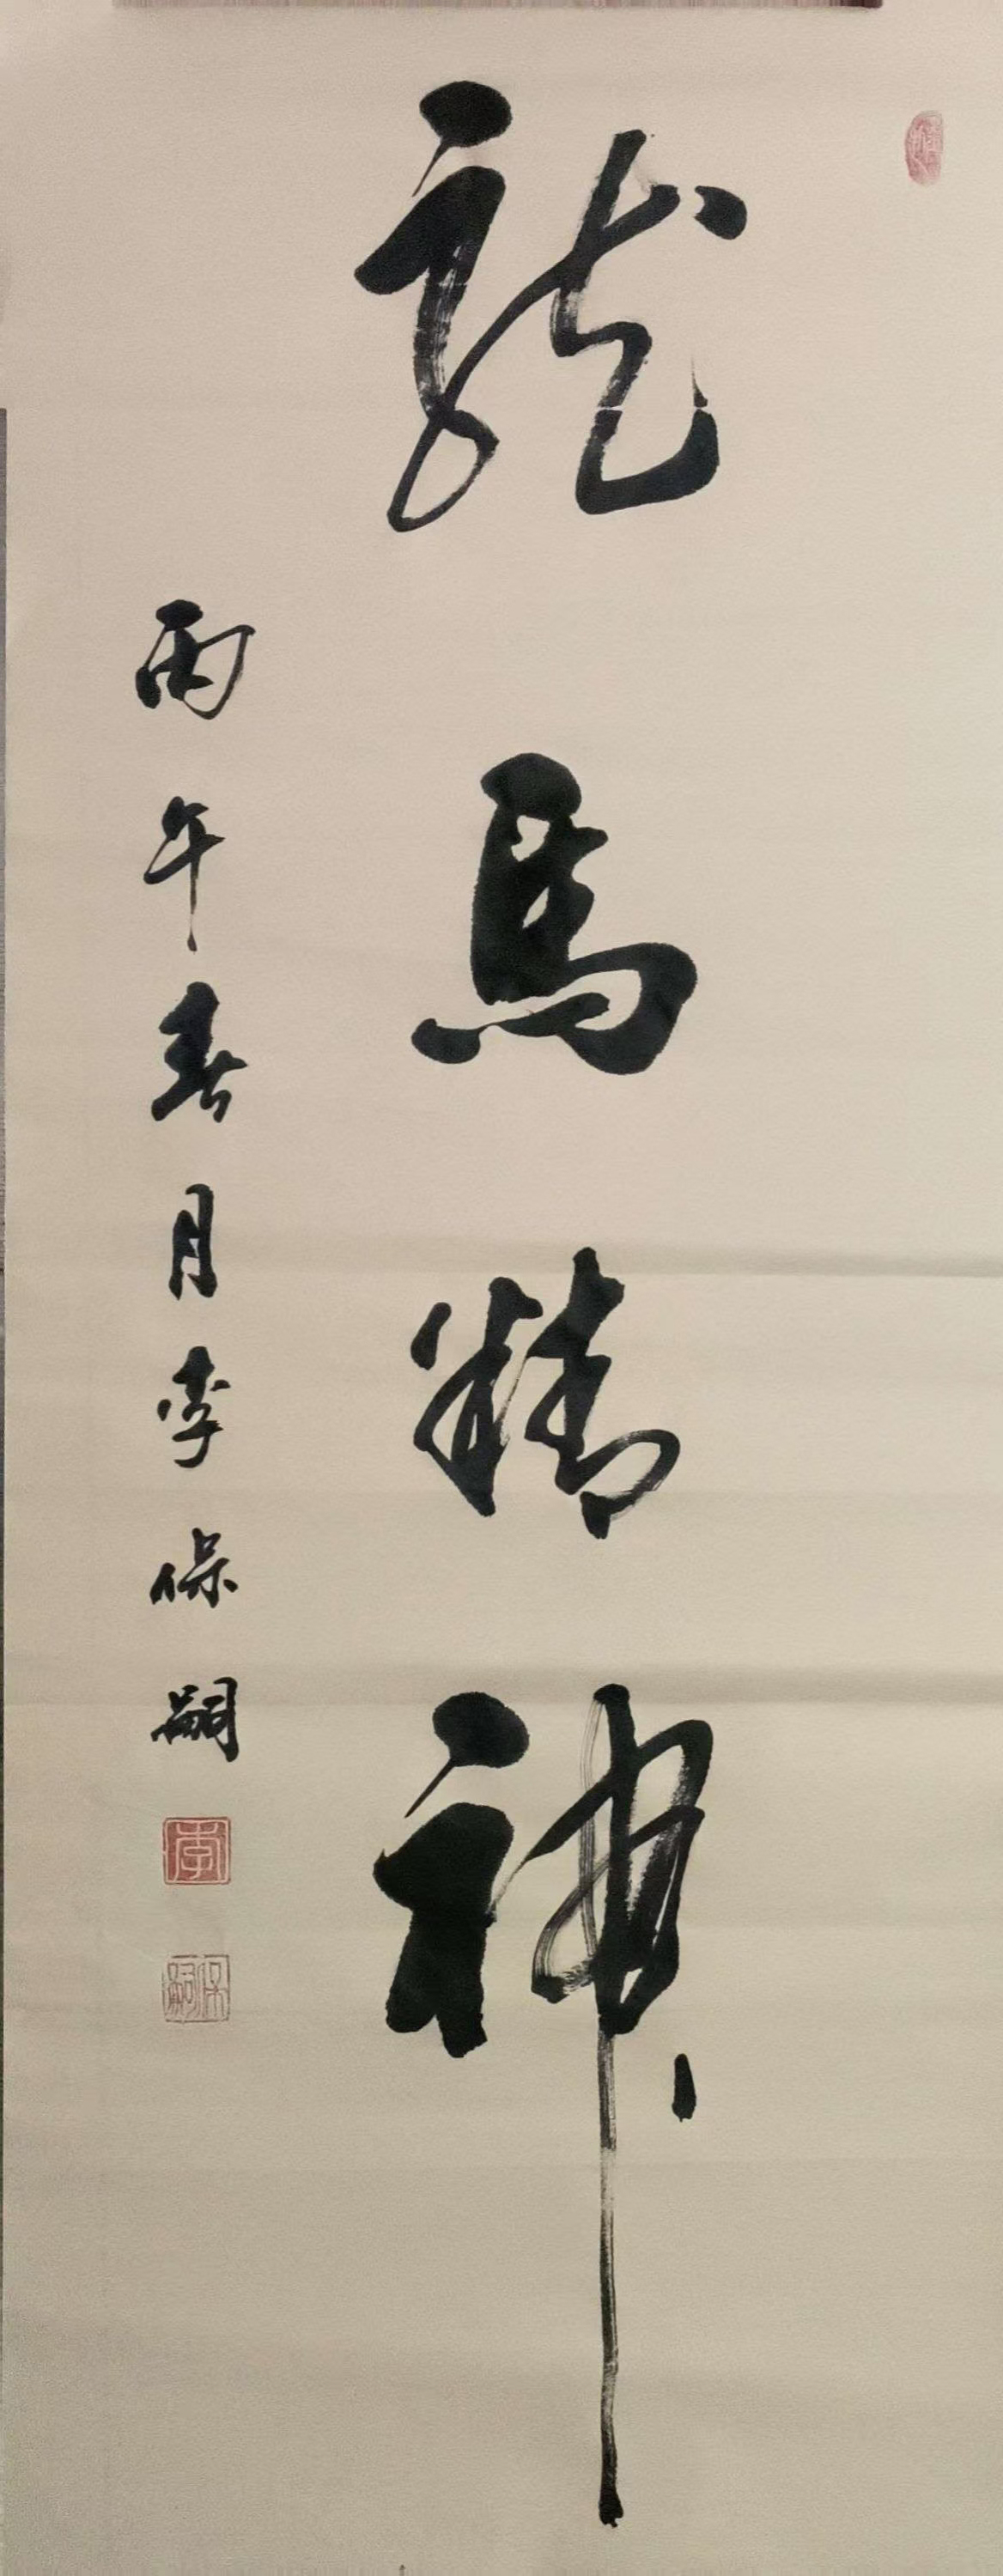 龍馬精神
丙午春月李保嗣
李
保嗣